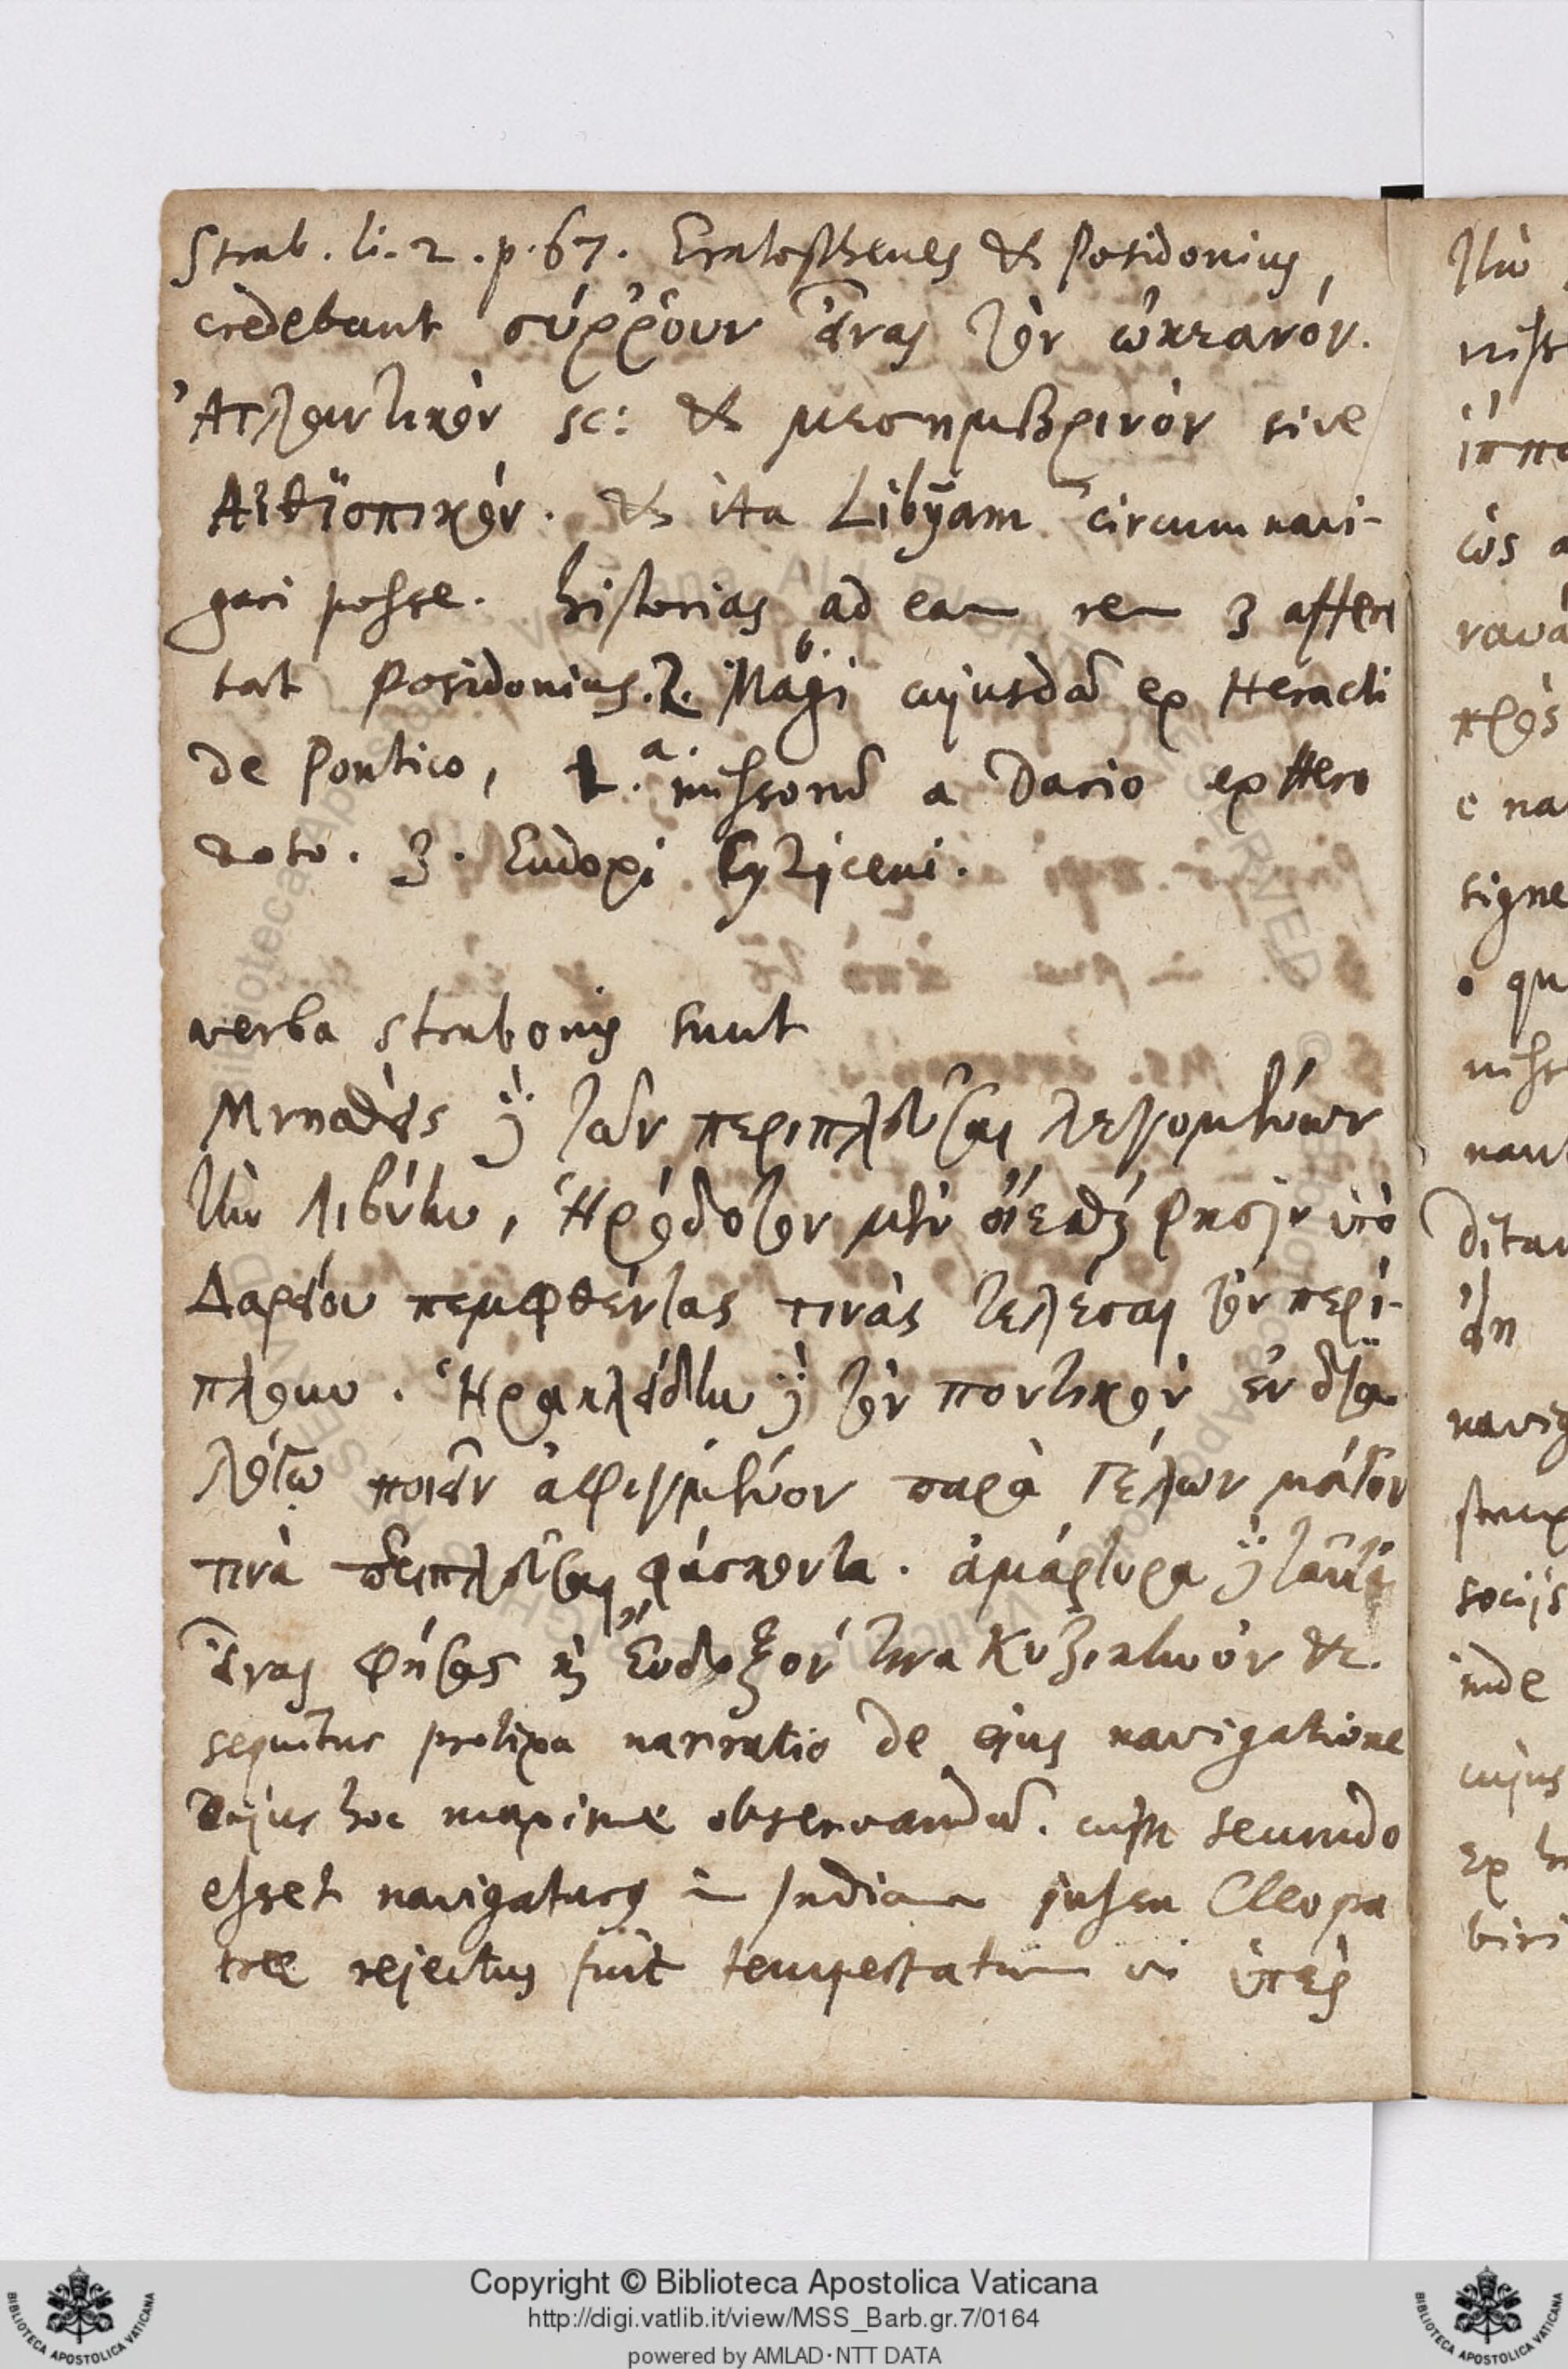 Strab. li. 2. p. 67. Eratosthenes & Posidonius,
credebant σύρρουν εἶναι τὸν ὠκεανόν.
Ἀτλαντικὸν sc: & μεσημβρινόν sive
Αἰθϊοπικόν. & ita Libyam circumnavi-
gari posse. historias ad eam rem 3 affer
tat Posidonius. 2. b. Magi cujusdã ex Heracli
de Pontico, 1. a. missorũ a Dario ex Hero
doto. 3. Eudoxi Cyziceni.
verba Strabonis sunt
Μνηαθεὶς δὲ τῶν περιπλεῦσαι λεγομένων
τὴν Λιβύην, Ἡρόδοτον μὲν οἴεσθαι φησὶν ὑπὸ
Δαρείου πεμφθέντας τινὰς τελέσαι τὸν περί-
πλουν. Ἡρακλείδην δὲ τὸν ποντικὸν ἐν δϊα
λόγῳ ποιεῖν ἀφιγμένον παρὰ Γέλων μάγον
τινὰ περιπλεῦσαι φάσκοντα. ἀμάρτυρα δὲ ταῦτ
εἶναι φήσας καὶ Εὔδοξόν τινα Κυζικηνόν &c.
sequitur prolixa narratio de ejus navigatione
Cujus hoc maxime observandũ. cum secundo
esset navigaturus in Indiam jussu Cleopa
trae rejectus fuit tempestatum vi ὑπὲρ
Τὴν
ὡς
πρὸς
signe
inde
cujus
Copyright © Biblioteca Apostolica Vaticana
http://digi.vatlib.it/view/MSS_Barb.gr.7/0164
powered by AMLAD·NTT DATA
BIBLIOTECA APOSTOLICA VATICANA
BIBLIOTECA APOSTOLICA VATICANA